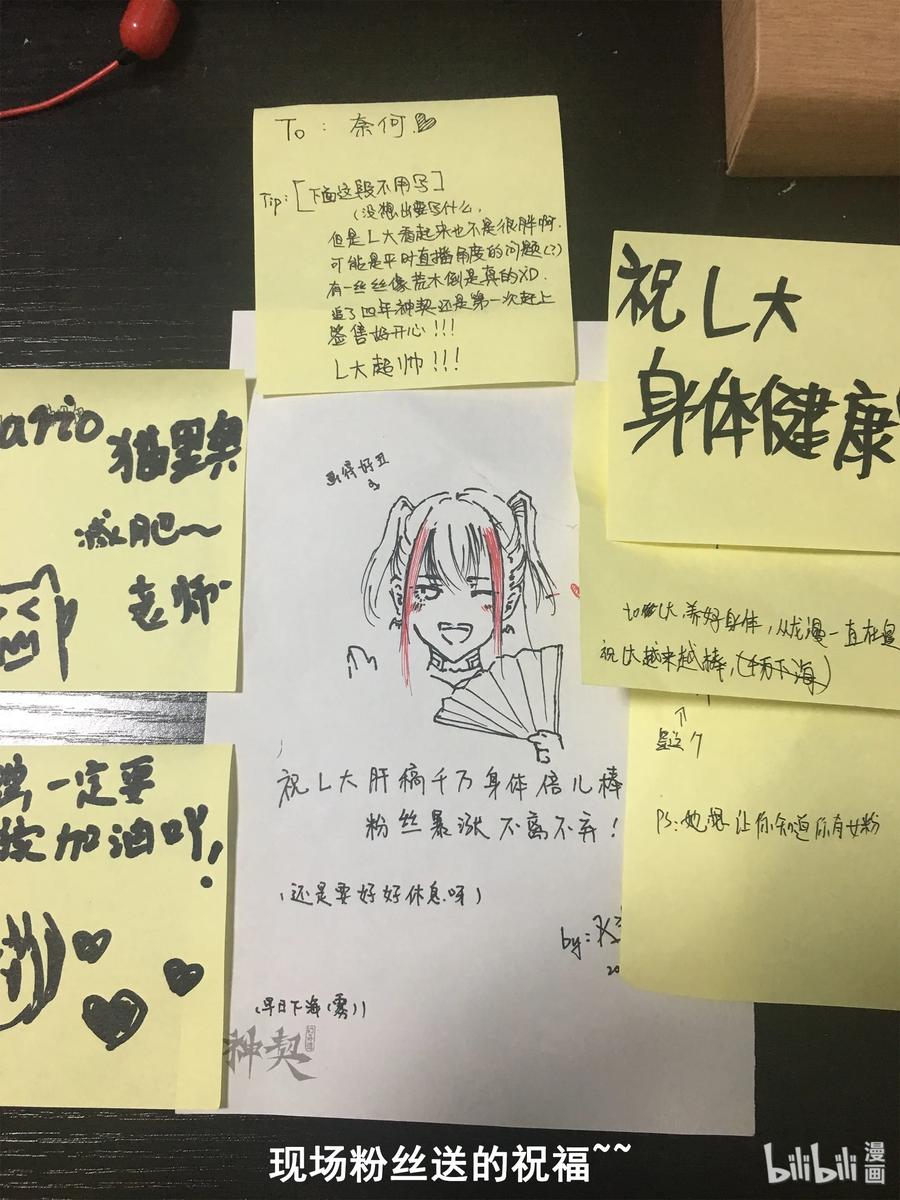 To: 奈何
Tip:[下面这段不用写]
(没想出要写什么,
但是L大看起来也不是很胖啊.
可能是平时直播角度的问题(?)
有一丝丝像荒木倒是真的XD.
追了四年神契还是第一次赶上
签售好开心!!!
L大超帅!!!
祝L大
身体健康
ario
猫里奥
减肥~
老师
画得好丑
to L大 养好身体,从龙漫一直在追
祝L大越来越棒,
PS:她想让你知道你有女粉
一定要
加油吖!
祝L大肝稿千万身体倍儿棒
粉丝暴涨不离不弃!
(还是要好好休息呀)
by:
20
(早日下海(雾))
神契
现场粉丝送的祝福~~
bilibili 漫画